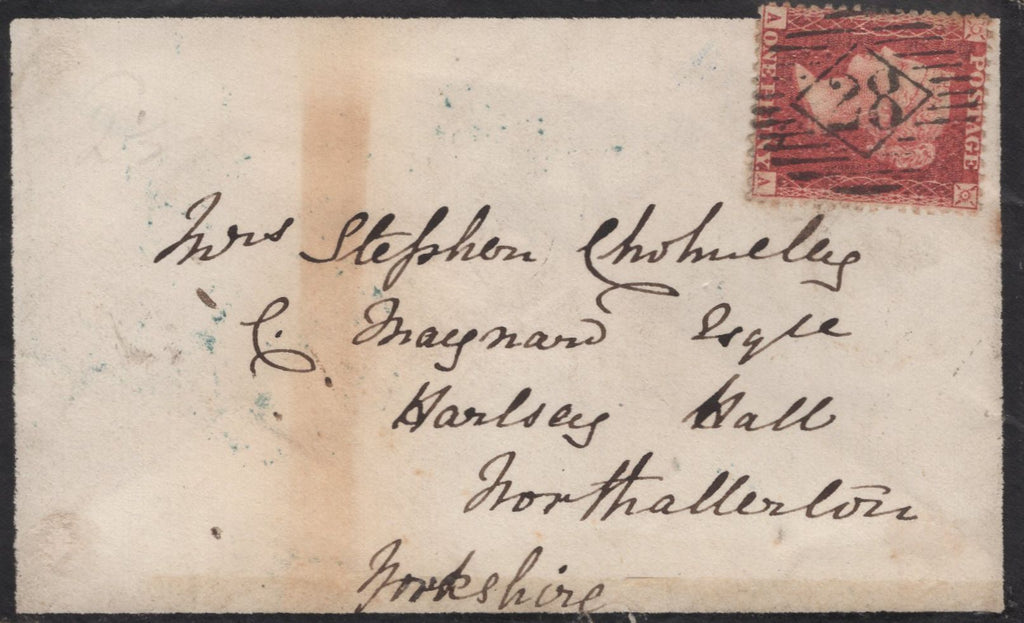 POSTAGE
28
A A
Mrs Stephen Cholmeley
C. Maynard Esqre
Harlsey Hall
Northallerton
Yorkshire